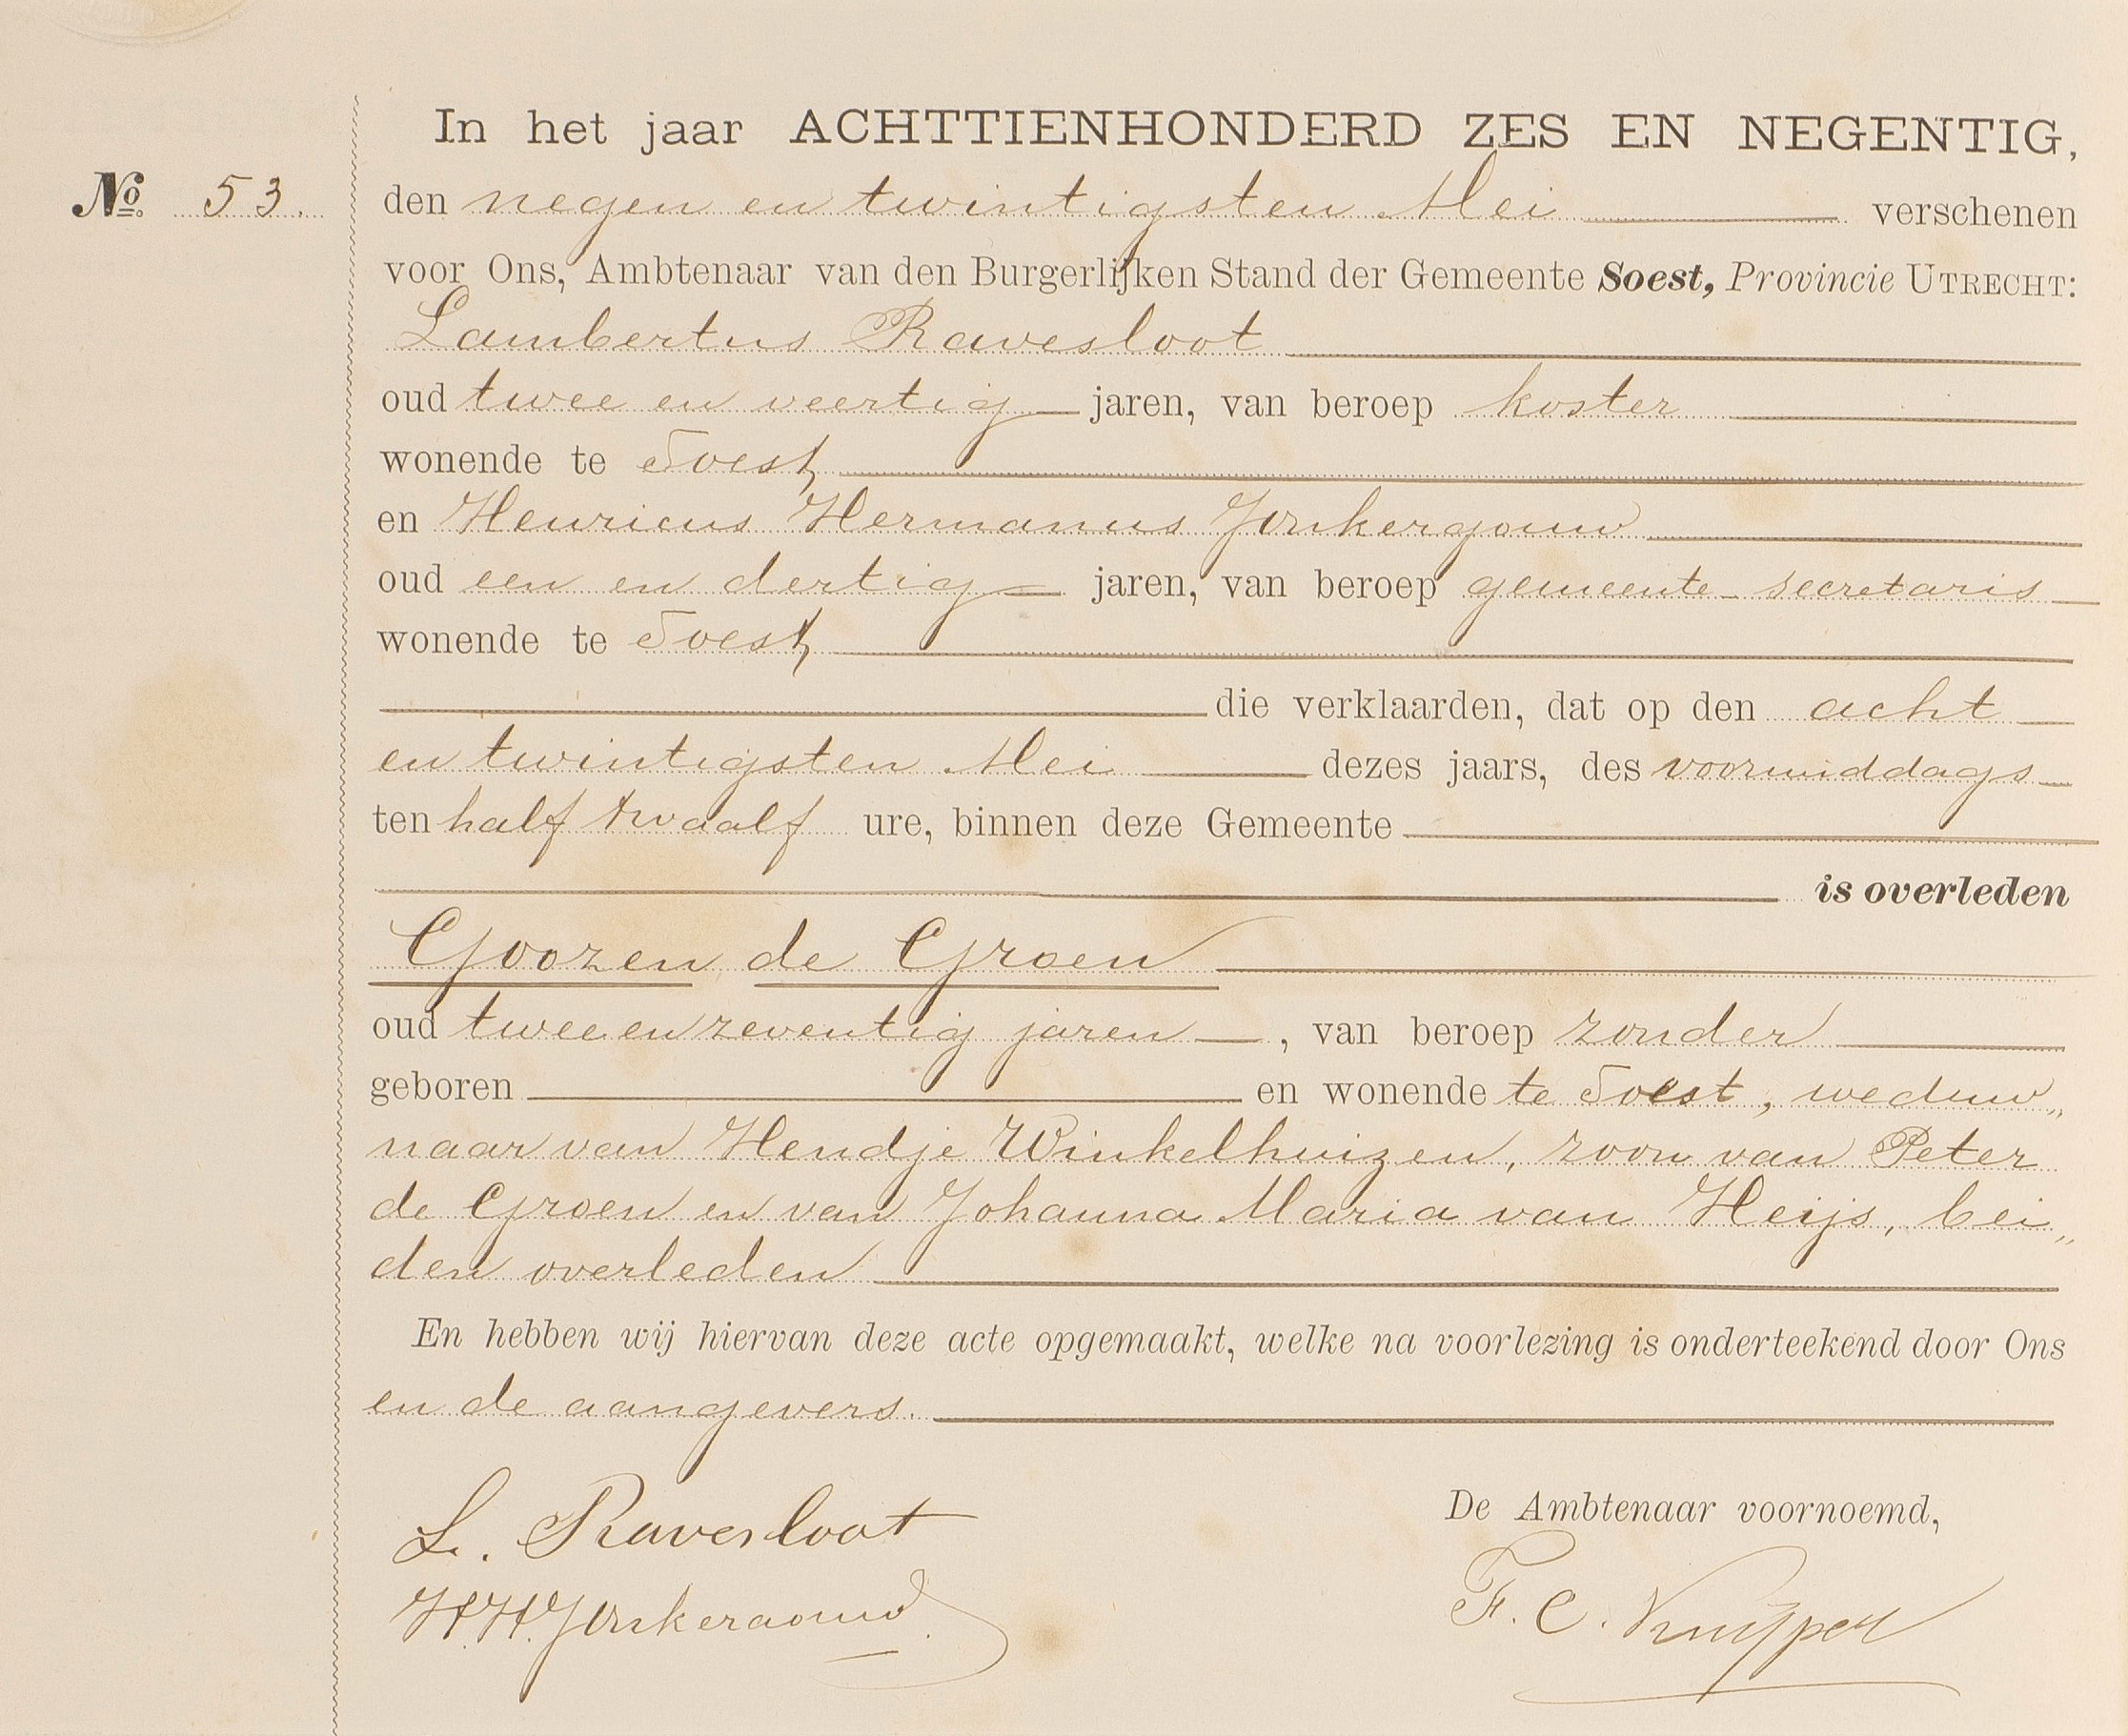 In het jaar ACHTTIENHONDERD ZES EN NEGENTIG,
No. 53.
den negen en twintigsten Mei verschenen
voor Ons, Ambtenaar van den Burgerlijken Stand der Gemeente Soest, Provincie UTRECHT:
Lambertus Ravesloot
oud twee en veertig jaren, van beroep koster
wonende te Soest,
en Henricus Hermanus Jonkergouw
oud een en dertig jaren, van beroep gemeente-secretaris
wonende te Soest,
die verklaarden, dat op den acht
en twintigsten Mei dezes jaars, des voormiddags
ten half twaalf ure, binnen deze Gemeente
is overleden
Goozen de Groen
oud twee en zeventig jaren, van beroep zonder
geboren en wonende te Soest, weduw„
naar van Hendje Winkelhuizen, zoon van Peter
de Groen en van Johanna Maria van Heijs, bei„
den overleden
En hebben wij hiervan deze acte opgemaakt, welke na voorlezing is onderteekend door Ons
en de aangevers.
L. Ravesloot
De Ambtenaar voornoemd,
H.H. Jonkergouw.
F. C. Kuijper